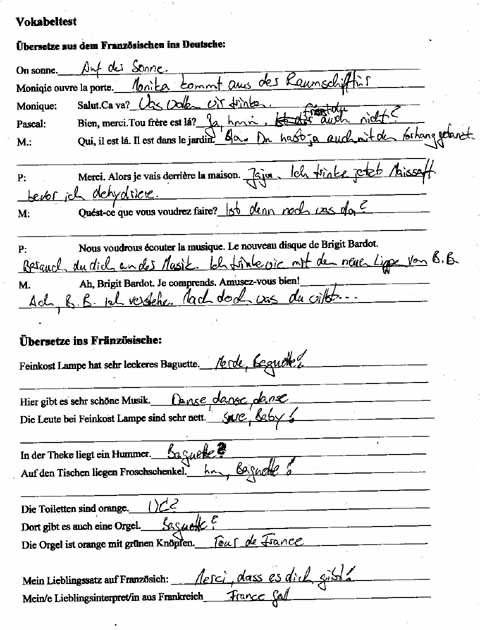 Vokabeltest
Übersetze aus dem Französischen ins Deutsche:
On sonne. Auf der Sonne.
Moniqie ouvra la porte. Monika kommt aus der Raumschifftür
Monique: Salut.Ca va? Was wollen wir trinken.
Pascal: Bien, merci.Tou frère est là? Ja, hmm. auch nicht?
M.: Qui, il est lá. Il est dans le jardin. Du hast ja auch mit den Vorhang getanzt.
P: Merci. Alors je vais derrière la maison. Jaja. Ich trinke jetzt
bevor ich dehydriere.
M: Quést-ce que vous voudrez faire? Ist denn noch was da?
P: Nous voudrous écouter la musique. Le nouveau disque de Brigit Bardot.
du dich an der Musik. Ich mit den neuen von B.B.
M. Ah, Brigit Bardot. Je comprends. Amusez-vous bien!
Ach, B.B. Ich verstehe. Mach doch was du willst...
Übersetze ins Fränzösische:
Feinkost Lampe hat sehr leckeres Baguette. Merde, Baguette!
Hier gibt es sehr schöne Musik. Danse danse, danse
Die Leute bei Feinkost Lampe sind sehr nett. sure, Baby!
In der Theke liegt ein Hummer. Baguette?
Auf den Tischen liegen Froschschenkel. hm, Baguette!
Die Toiletten sind orange. WC?
Dort gibt es auch eine Orgel. Baguette?
Die Orgel ist orange mit grünen Knöpfen. Tour de France
Mein Lieblingssatz auf Französich: Merci, dass es dich gibt!
Mein/e Lieblingsinterpret/in aus Frankreich France Gall